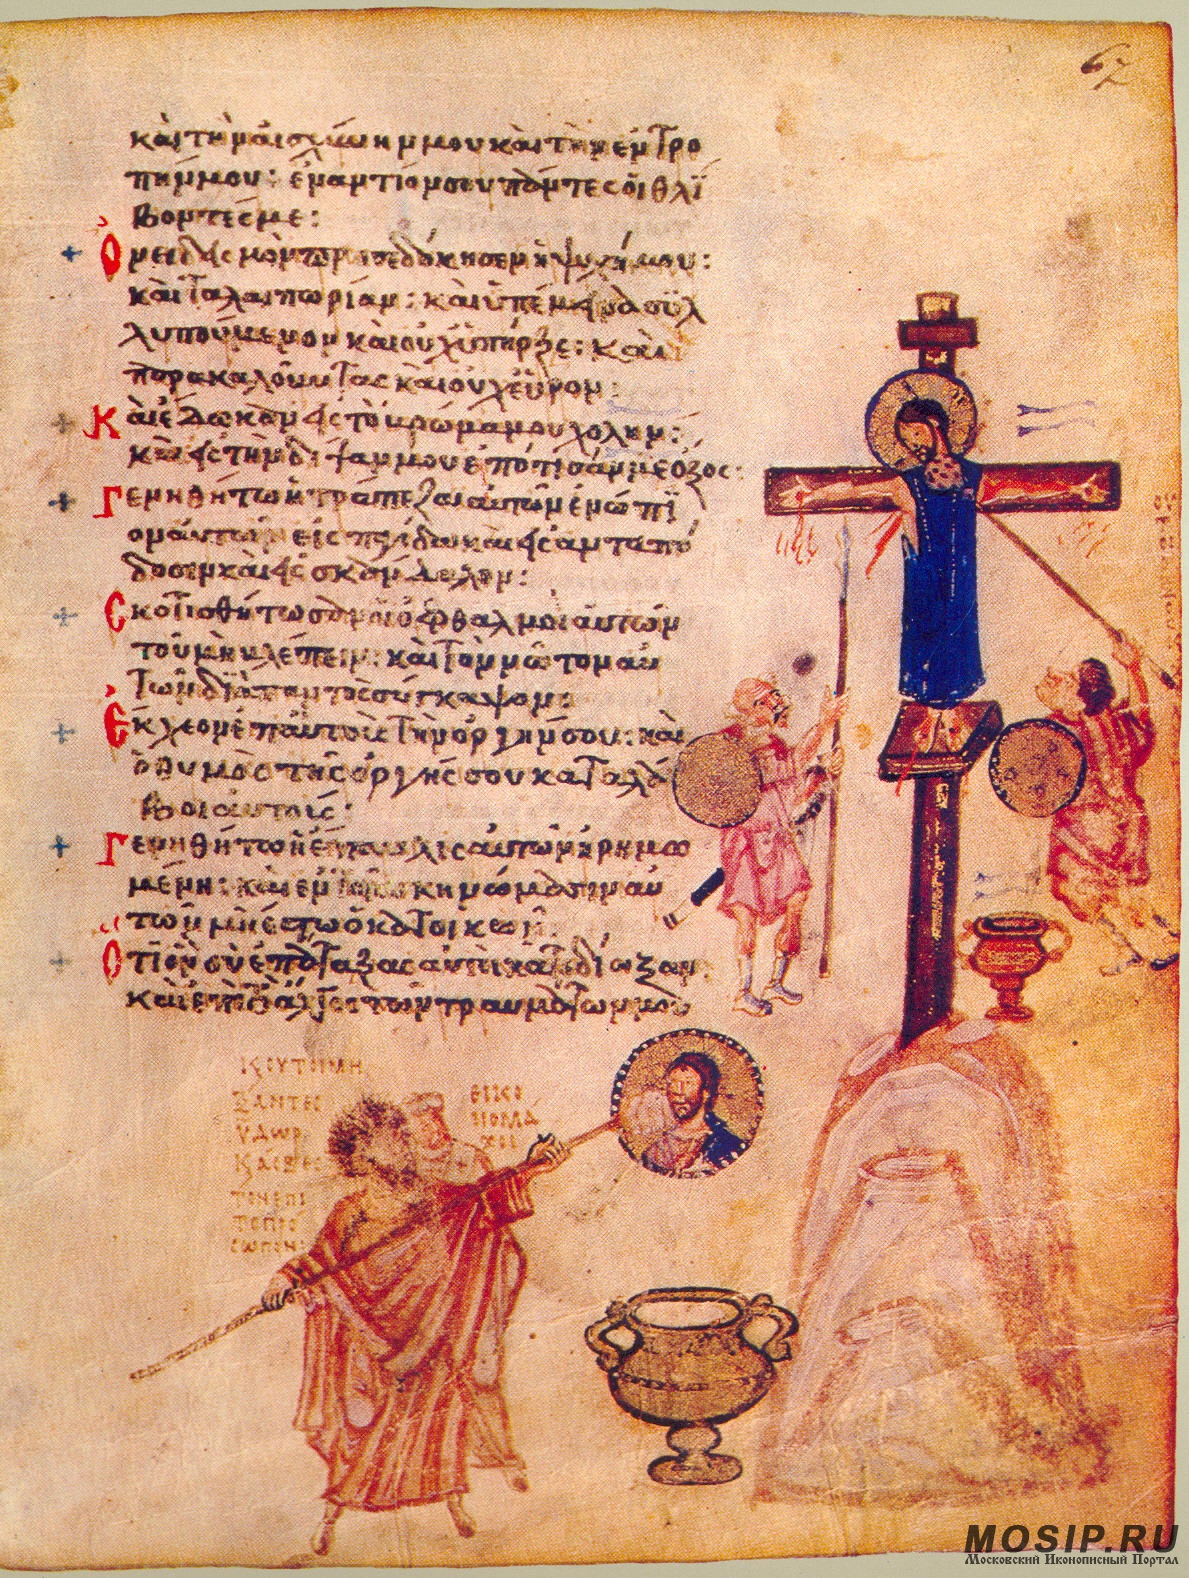 67
καὶ τὴν αἰσχύνην μου καὶ τὴν ἐντρο
πήν μου: ἐναντίον σου πάντες οἱ θλί
βοντές με:
Ὀνειδισμὸν προσεδόκησεν ἡ ψυχή μου:
καὶ ταλαιπωρίαν: καὶ ὑπέμεινα συλ
λυπούμενον καὶ οὐχ ὑπῆρξε: καὶ
παρακαλοῦντας καὶ οὐχ εὗρον:
Καὶ ἔδωκαν εἰς τὸ βρῶμά μου χολήν:
καὶ εἰς τὴν δίψαν μου ἐπότισάν με ὄξος:
Γενηθήτω ἡ τράπεζα αὐτῶν ἐνώπι
ον αὐτῶν εἰς παγίδα καὶ εἰς ἀνταπό
δοσιν καὶ εἰς σκάνδαλον:
Σκοτισθήτωσαν οἱ ὀφθαλμοὶ αὐτῶν
τοῦ μὴ βλέπειν: καὶ τὸν νῶτον αὐ
τῶν διὰ παντὸς σύγκαμψον:
Ἔκχεον ἐπ' αὐτοὺς τὴν ὀργήν σου: καὶ
ὁ θυμὸς τῆς ὀργῆς σου καταλά
βοι αὐτούς:
Γενηθήτω ἡ ἔπαυλις αὐτῶν ἠρημω
μένη: καὶ ἐν τοῖς σκηνώμασιν αὐ
τῶν μὴ ἔστω ὁ κατοικῶν:
Ὅτι ὃν σὺ ἐπάταξας αὐτοὶ κατεδίωξαν:
καὶ ἐπὶ τὸ ἄλγος τῶν τραυμάτων μου
ΕΙΚΟ
ΝΟΜΑ
ΧΟΙ
ΥΔΩΡ
MOSIP.RU
Московский Иконописный Портал